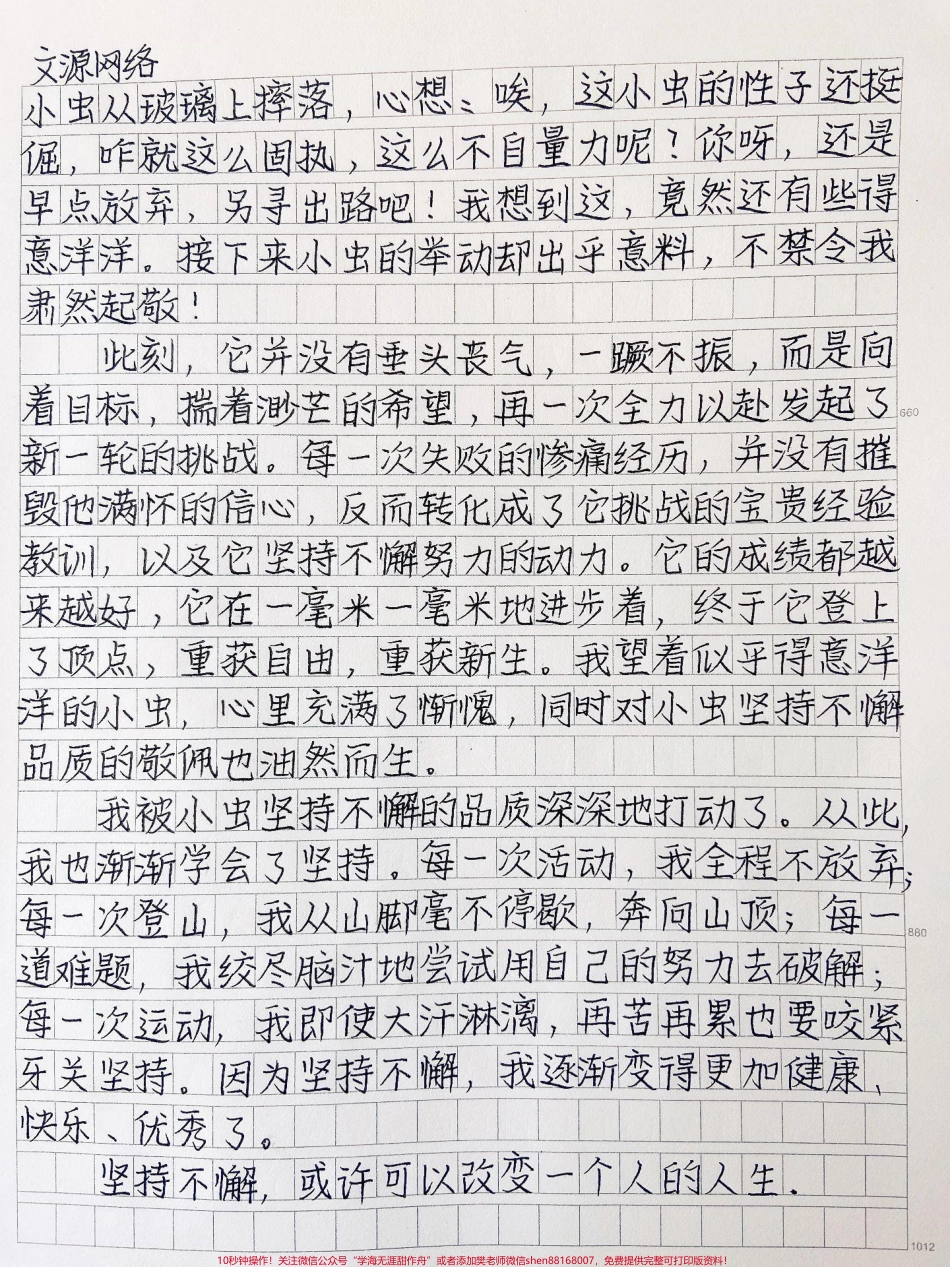 文源网络
小虫从玻璃上摔落，心想：唉，这小虫的性子还挺
倔，咋就这么固执，这么不自量力呢？你呀，还是
早点放弃，另寻出路吧！我想到这，竟然还有些得
意洋洋。接下来小虫的举动却出乎意料，不禁令我
肃然起敬！
此刻，它并没有垂头丧气，一蹶不振，而是向
着目标，揣着渺茫的希望，再一次全力以赴发起了
660
新一轮的挑战。每一次失败的惨痛经历，并没有摧
毁他满怀的信心，反而转化成了它挑战的宝贵经验
教训，以及它坚持不懈努力的动力。它的成绩都越
来越好，它在一毫米一毫米地进步着，终于它登上
了顶点，重获自由，重获新生。我望着似乎得意洋
洋的小虫，心里充满了惭愧，同时对小虫坚持不懈
品质的敬佩也油然而生。
我被小虫坚持不懈的品质深深地打动了。从此，
我也渐渐学会了坚持。每一次活动，我全程不放弃；
每一次登山，我从山脚毫不停歇，奔向山顶；每一
880
道难题，我绞尽脑汁地尝试用自己的努力去破解；
每一次运动，我即使大汗淋漓，再苦再累也要咬紧
牙关坚持。因为坚持不懈，我逐渐变得更加健康、
快乐、优秀了。
坚持不懈，或许可以改变一个人的人生.
1012
10秒钟操作！关注微信公众号“学海无涯甜作舟”或者添加樊老师微信shen88168007，免费提供完整可打印版资料！